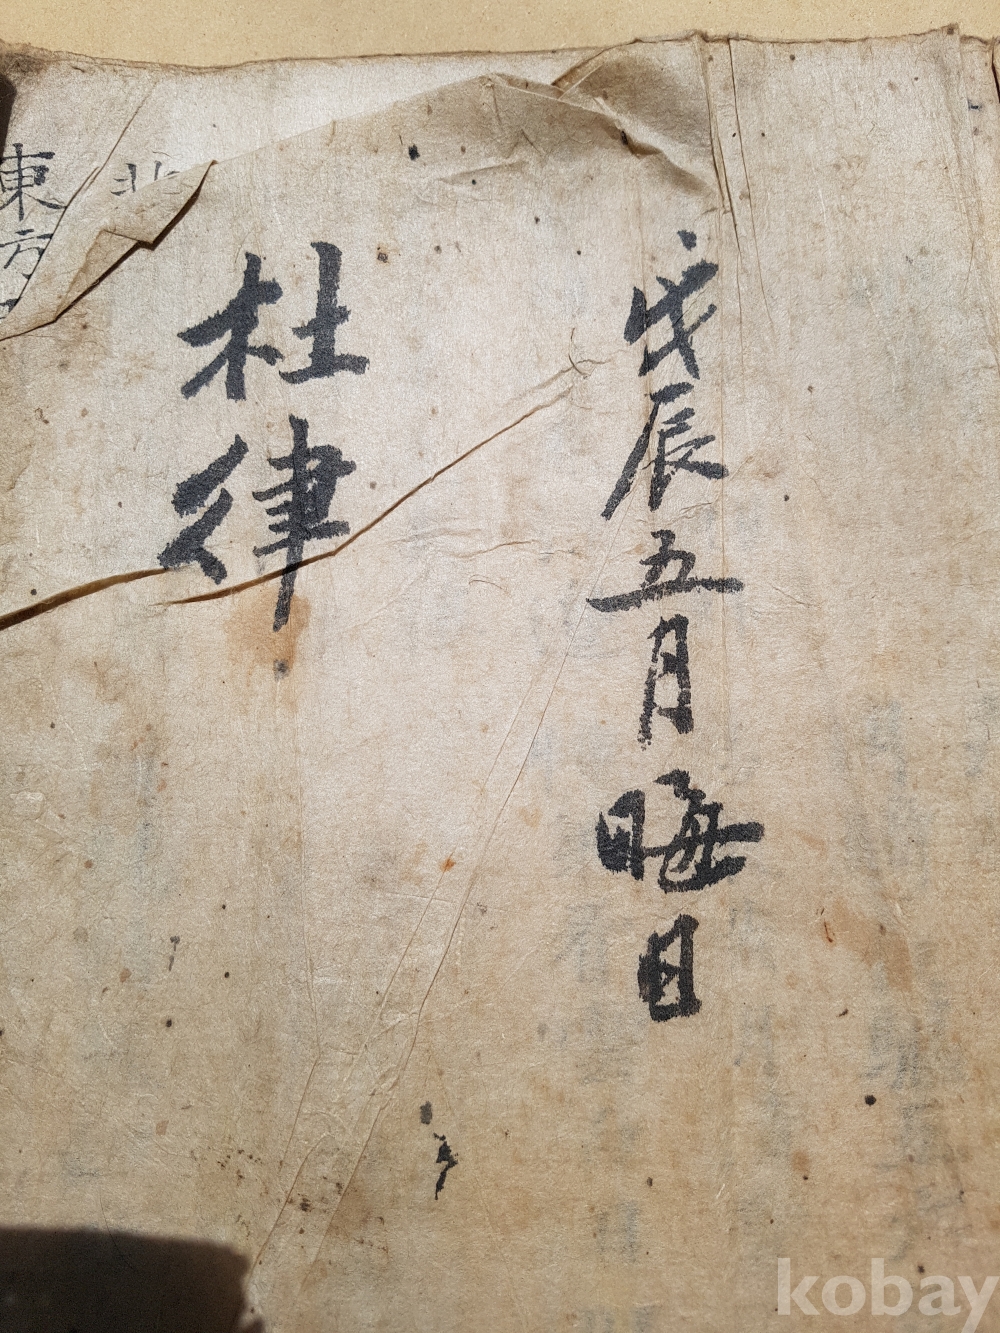 戊辰五月晦日
杜律
北
東方
kobay